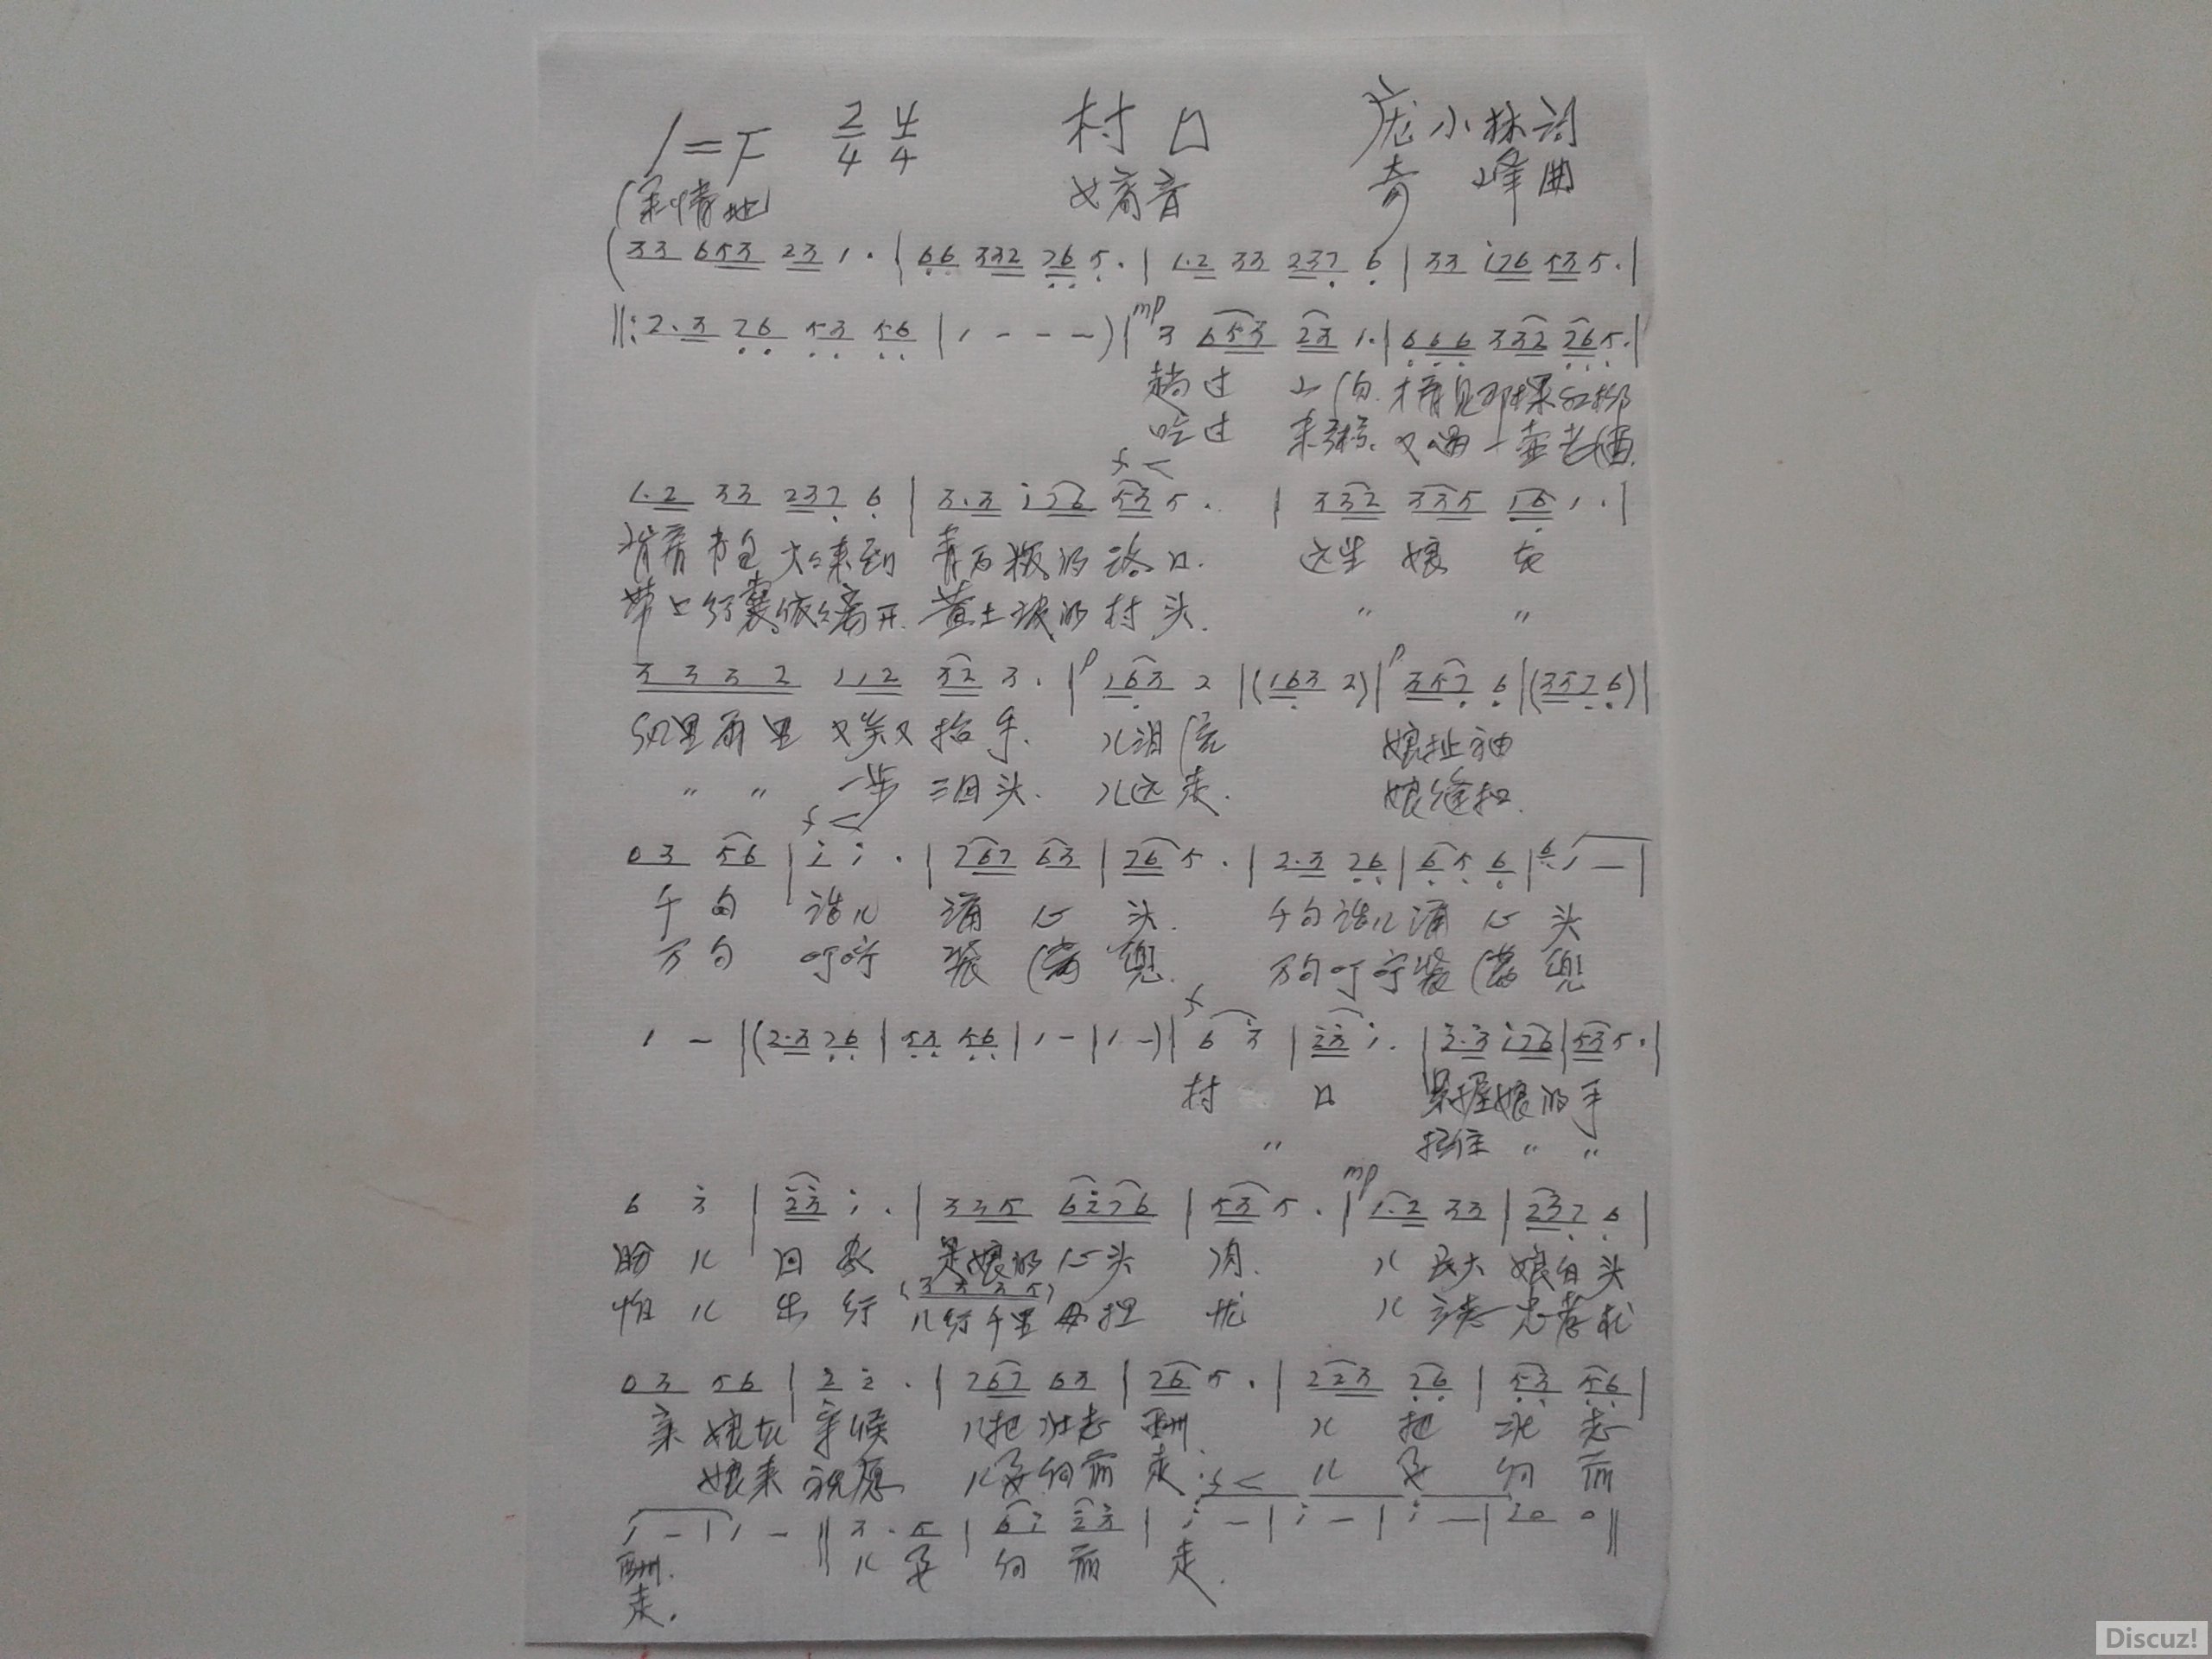 1=F 2/4 4/4 村口 庞小林词
(亲情地) 女高音 奇峰曲
(33 653 23 1· | 66 332 76 5· | 1·2 33 237 6 | 33 i76 53 5· |
‖: 2·3 76 53 56 | 1 - - -) | mp 3 653 23 1· | 666 332 765· |
趟过 才看见那棵
吃过 又喝一壶老酒
1·2 33 237 6 | 3·3 i76 f< 53 5· | 332 335 16 1· |
背着书包 来到 青石板的路口. 这里 娘 在
带上行囊依依离开. 黄土坡的村头. 〃 〃
3 3 3 2 112 32 3· | p 163 2 | (163 2) | p 357 6 | (357 6) |
又 抬手. 儿泪流 娘扯袖
〃 〃 一步 三回头. 儿远走. 娘缝扣.
03 56 | f< i i · | 767 63 | 76 5 · | 2·3 76 | 6 5 6 | 6 1 — |
千句 话儿 涌 心 头. 千句话儿涌 心 头
万句 叮咛 装 满 兜. 万句叮咛装 满 兜
1 — | (2·3 76 | 53 56 | 1 - | 1 -) | f 6 3 | 23 i· | 3·3 i76 | 53 5· |
村 口 紧握娘的手
〃 〃 〃
6 3 | 23 i · | 335 6i76 | 53 5 · | mp 1·2 33 | 237 6 |
盼 儿 回 家 是娘的心头 肉. 儿 长大 娘白头
(3 3 3 5)
怕 儿 出 行 儿行千里母担 忧 儿 立志 忠孝
03 56 | 2 2 · | 767 63 | 76 5 · | 223 76 | 53 56 |
亲 娘在 等候 儿把壮志 酬 儿 把 壮 志
娘来 祝愿 儿要向前 走. 儿 要 向 前
1 - | 1 - ‖ 3 · 5 | 6i 23 | f< i - | i - | i — | i0 0 ‖
酬. 儿 要 向 前 走.
走.
Discuz!